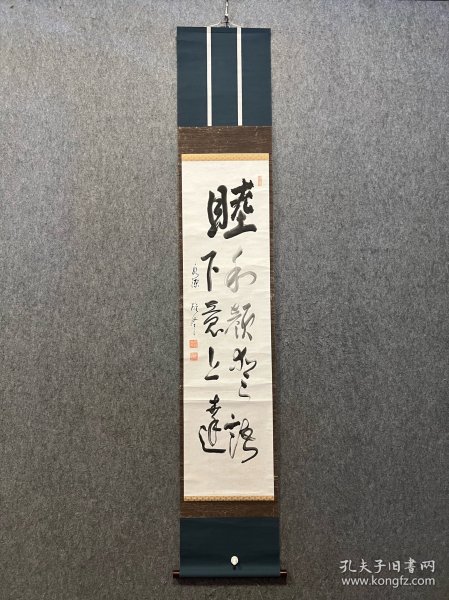 睦
和顔愛語
下意上達
孔夫子旧书网
www.kongfz.com